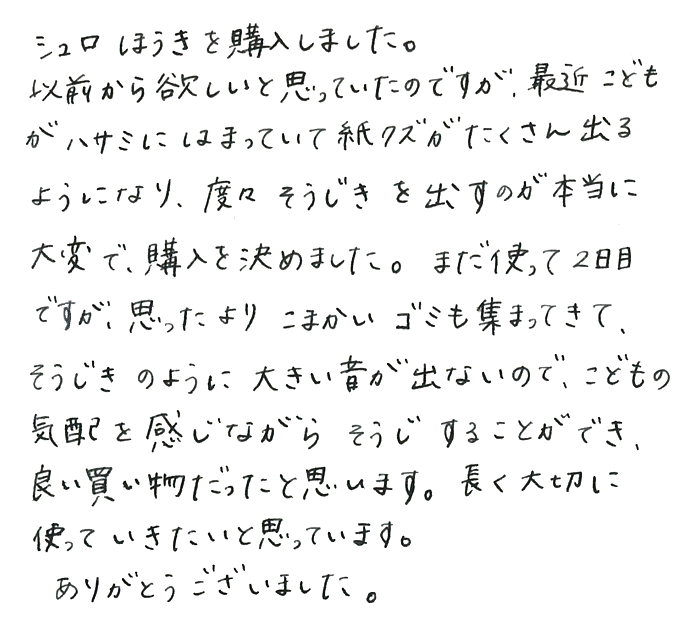 シュロほうきを購入しました。
以前から欲しいと思っていたのですが、最近こども
がハサミにはまっていて紙クズがたくさん出る
ようになり、度々そうじきを出すのが本当に
大変で、購入を決めました。まだ使って2日目
ですが、思ったよりこまかいゴミも集まってきて、
そうじきのように大きい音が出ないので、こどもの
気配を感じながらそうじすることができ、
良い買い物だったと思います。長く大切に
使っていきたいと思っています。
ありがとうございました。